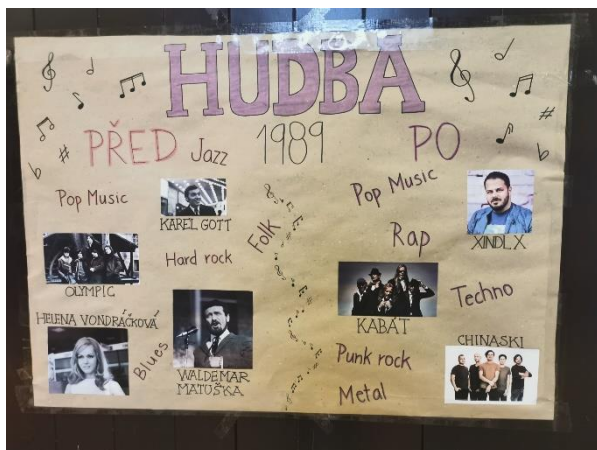 HUDBA
PŘED
Jazz
1989
PO
Pop Music
KAREL GOTT
Hard rock
Folk
OLYMPIC
HELENA VONDRÁČKOVÁ
Blues
WALDEMAR
MATUŠKA
Pop Music
XINDL X
Rap
KABÁT
Techno
Punk rock
CHINASKI
Metal